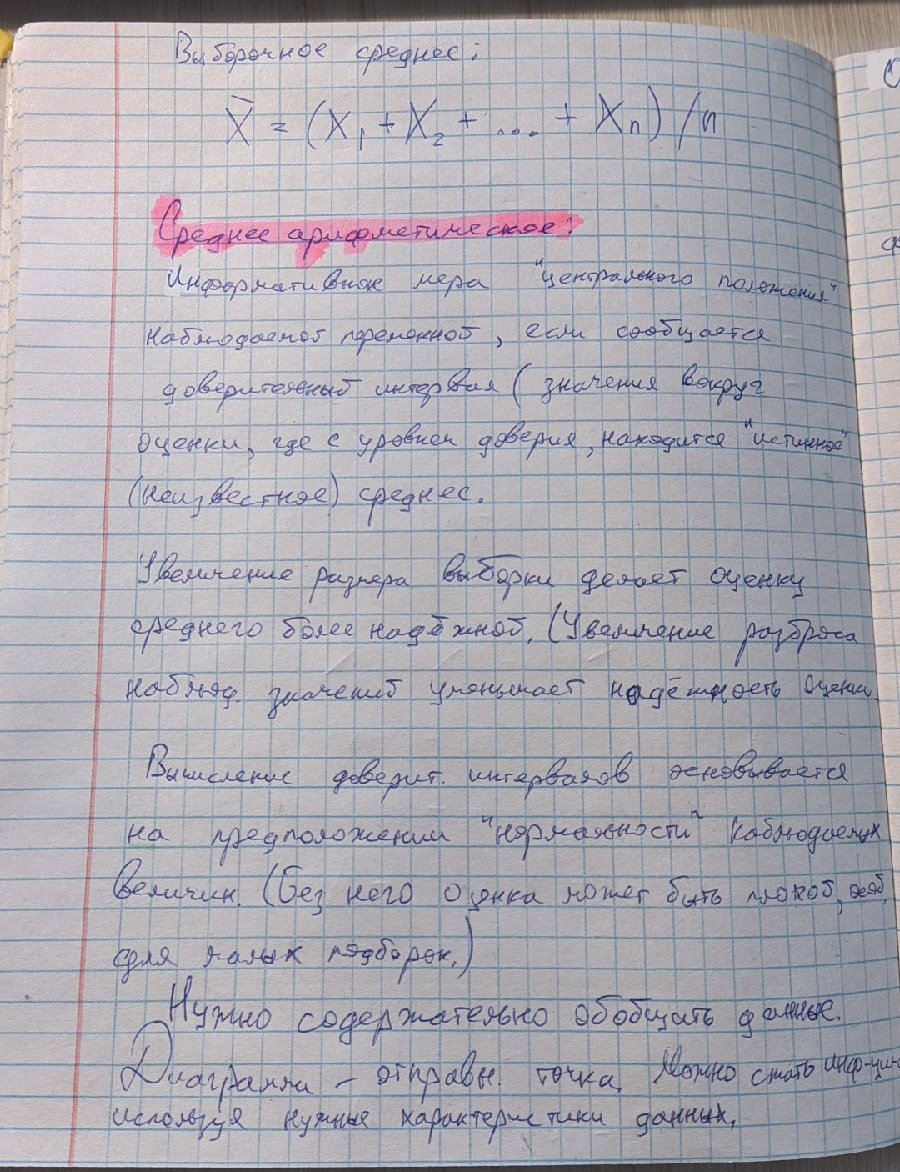 Выборочное среднее:
X̄ = (X₁ + X₂ + ... + Xₙ) / n
Среднее арифметическое:
Информативная мера "центрального положения"
наблюдаемой переменной, если сообщается
доверительный интервал (значения вокруг
оценки, где с уровнем доверия, находится "истинное"
(неизвестное) среднее.
Увеличение размера выборки делает оценку
среднего более надёжной. (Увеличение разброса
наблюд. значений уменьшает надёжность оценки
Вычисление доверит. интервалов основывается
на предположении "нормальности" наблюдаемых
величин. (Без него оценка может быть плохой, особ.
для малых подборок.)
Нужно содержательно обобщать данные.
Диаграмма – отправн. точка. Можно сжать
используя нужные характеристики данных.